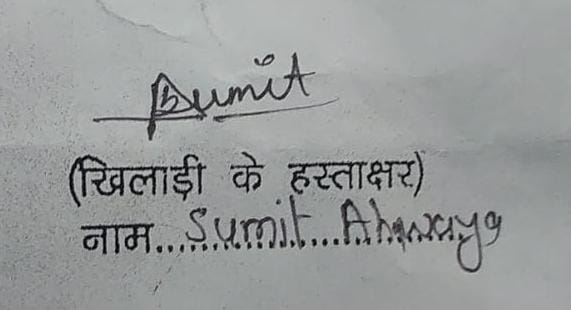 Sumit
(खिलाड़ी के हस्ताक्षर)
नाम...Sumit...